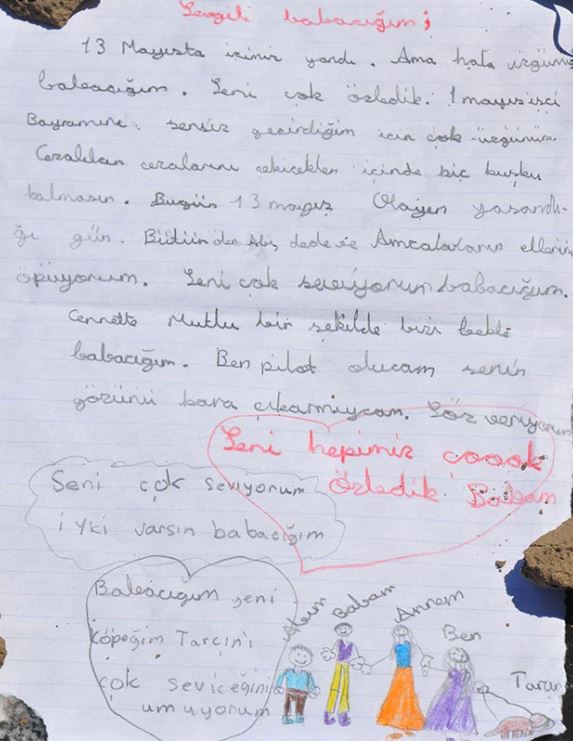 Sevgili babacığım;
13 Mayısta içimiz yandı. Ama hala üzgünüz
babacığım. Seni çok özledik. 1 mayıs işci
Bayramını sensiz geçirdiğim icin çok üzgünüm.
cezalarını içinde hiç kuşku
kalmasın. Bugün 13 mayıs Olayen yasandı-
ğı gün. Bütün dede ve Amcalaların ellerin
öpüyorum. Seni çok seviyorum babacığım.
Cennette Mutlu bir şekilde bizi bekle
babacığım. Ben pilot olucam senin
yüzünü kara çıkarmıycam. Söz veriyorum
Seni hepimiz coook
özledik Babam
Seni çok seviyorum
iyki varsın babacığım
Babacığım yeni
köpeğim Tarçın'ı
çok seviceğini
umuyorum
Babam
Annem
Ben
Tarçın